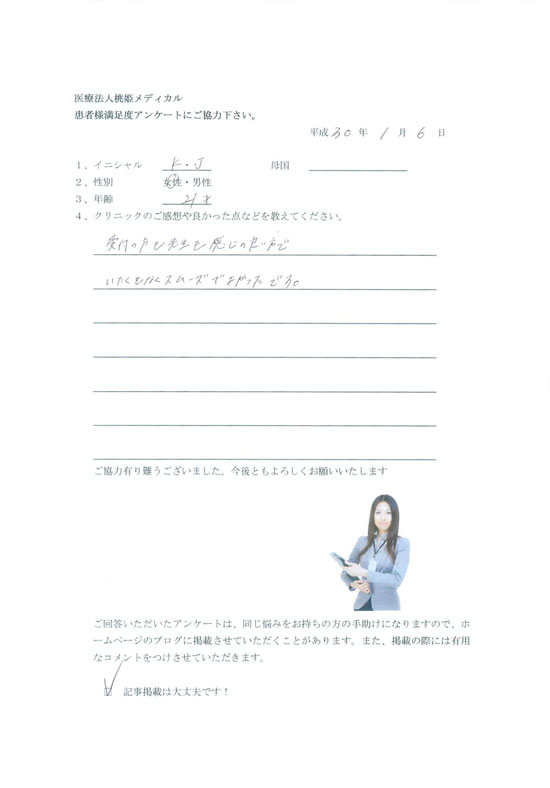 医療法人桃姫メディカル
患者様満足度アンケートにご協力下さい。
平成 30 年 1 月 6 日
1、イニシャル K・J 母国
2、性別 女性・男性
3、年齢 21才
4、クリニックのご感想や良かった点などを教えてください。
受付の方も先生も感じの良い方で
いたくもなくスムーズでよかったです。
ご協力有り難うございました。今後ともよろしくお願いいたします
ご回答いただいたアンケートは、同じ悩みをお持ちの方の手助けになりますので、ホ
ームページのブログに掲載させていただくことがあります。また、掲載の際には有用
なコメントをつけさせていただきます。
記事掲載は大丈夫です！